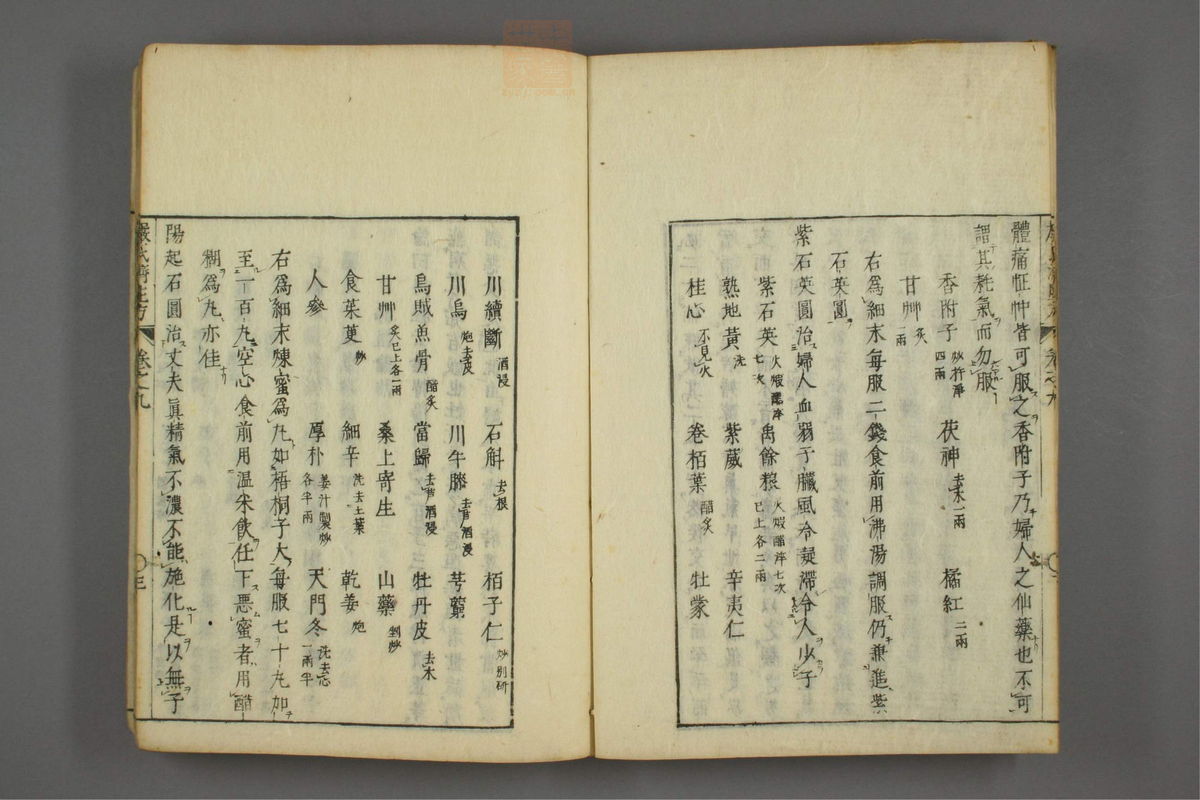 體痛怔忡皆可服之香附子乃婦人之仙藥也不可
謂其耗氣而勿服
香附子 炒杵淨四兩 茯神 去木一兩 橘紅 二兩
甘艸 炙一兩
右為細末每服二錢食前用沸湯調服仍兼進紫
石英圓
紫石英圓治婦人血弱子臟風冷凝滯令人少子
紫石英 火煅醋淬七次 禹餘粮 火煅醋淬七次已上各二兩 辛夷仁
熟地黃 洗 紫葳
桂心 不見火 卷栢葉 醋炙 牡蒙
川續斷 酒浸 石斛 去根 栢子仁 炒別研
川烏 炮去皮 川牛膝 去芦酒浸 芎藭
烏賊魚骨 醋炙 當歸 去芦酒浸 牡丹皮 去木
甘艸 炙已上各一兩 桑上寄生 山藥 剉炒
食茱萸 炒 細辛 洗去土葉 乾姜 炮
人參 厚朴 姜汁製炒各半兩 天門冬 洗去心一兩半
右為細末煉蜜為丸如梧桐子大每服七十丸加
至一百丸空心食前用温米飲任下惡蜜者用醋
糊為丸亦佳
陽起石圓治丈夫眞精氣不濃不能施化是以無子
卷之九